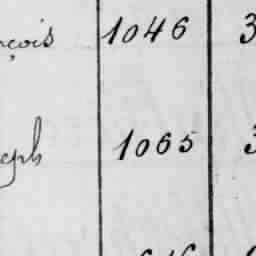 çois 1046 3
eph 1065 3